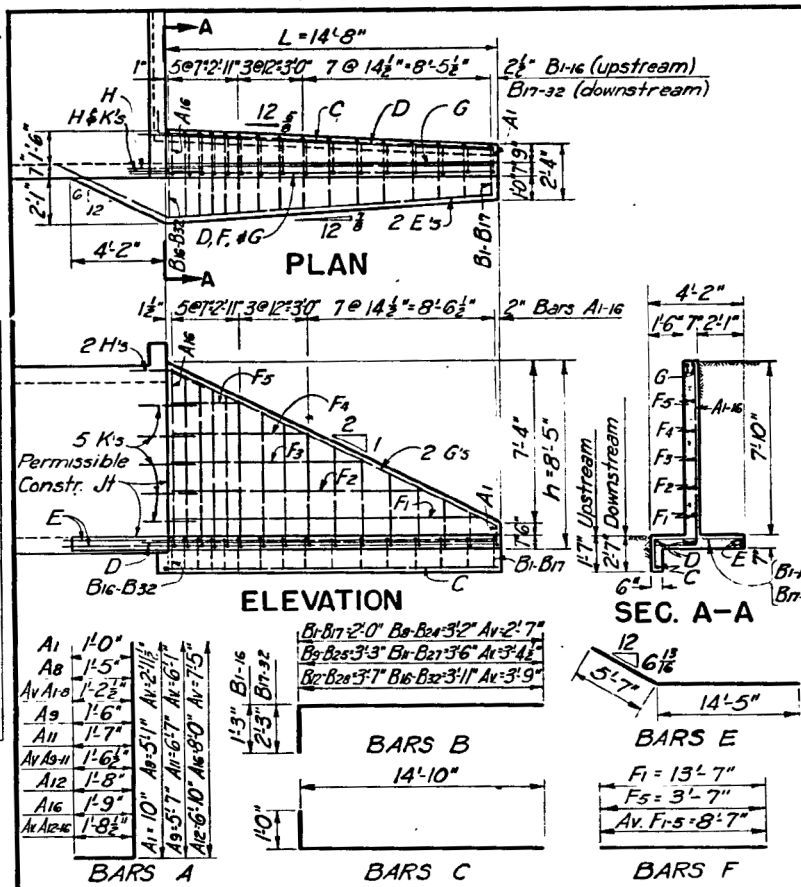 A
L = 14'-8"
1" 5@7"=2'-11" 3@12"=3'-0" 7 @ 14½"=8'-5½" 2½" B1-16 (upstream)
B17-32 (downstream)
H
H & K's
A16
12
C
D
G
A1
1'-6"
7"
2'-1"
6
12
9"
7"
1'-0"
2'-4"
4'-2"
B16-B32
D, F, & G
12 7/8
2 E's
B1-B17
A
PLAN
1½" 5@7"=2'-11" 3@12"=3'-0" 7 @ 14½"=8'-6½" 2" Bars A1-16
4'-2"
1'-6" 7" 2'-1"
2 H's
A16
F5
F4
F3
F2
F1
2
1
2 G's
A1
5 K's
Permissible
Constr. Jt
E
D
B16-B32
C
B1-B17
7'-4"
h=8'-5"
6"
7"
1'-7" Upstream
2'-7" Downstream
G
F5
F4
F3
F2
F1
A1-16
7'-10"
D
E
C
7"
6"
B1-
B17-
ELEVATION
SEC. A-A
A1 1'-0"
A8 1'-5"
Av A1-8 1'-2½"
A9 1'-6"
A11 1'-7"
Av A9-11 1'-6½"
A12 1'-8"
A16 1'-9"
Av A12-16 1'-8½"
A1=10" A8=5'-1" Av=2'-11½"
A9=5'-7" A11=6'-7" Av=6'-1"
A12=6'-10" A16=8'-0" Av=7'-5"
BARS A
B1-B17=2'-0" B8-B24=3'-2" Av=2'-7"
B9-B25=3'-3" B11-B27=3'-6" Av=3'-4½"
B12-B28=3'-7" B16-B32=3'-11" Av=3'-9"
1'-3" B1-16
2'-3" B17-32
BARS B
14'-10"
1'-0"
BARS C
12
6 13/16
5'-7"
14'-5"
BARS E
F1 = 13'-7"
F5 = 3'-7"
Av. F1-5=8'-7"
BARS F